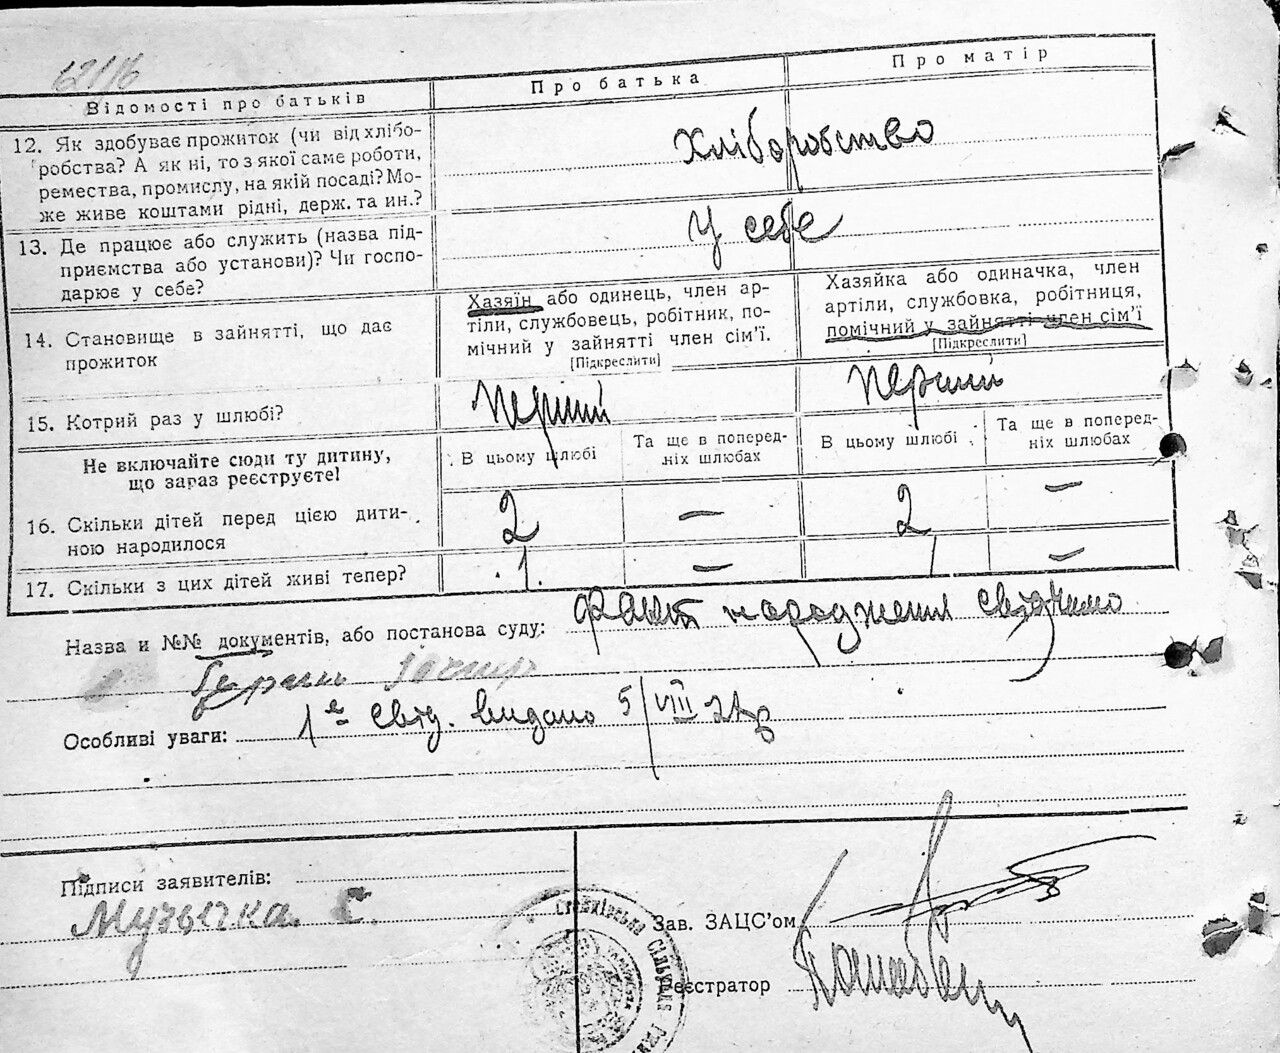 Відомості про батьків
Про батька
Про матір
12. Як здобуває прожиток (чи від хлібо-
робства? А як ні, то з якої саме роботи,
ремества, промислу, на якій посаді? Мо-
же живе коштами рідні, держ. та ин.?
Хліборобство
13. Де працює або служить (назва під-
приємства або установи)? Чи госпо-
дарює у себе?
У себе
14. Становище в зайнятті, що дає
прожиток
Хазяїн або одинець, член ар-
тіли, службовець, робітник, по-
мічний у зайнятті член сім'ї.
[Підкреслити]
Хазяйка або одиначка, член
артіли, службовка, робітниця,
помічний у зайнятті член сім'ї
[Підкреслити]
15. Котрий раз у шлюбі?
перший
перший
Не включайте сюди ту дитину,
що зараз реєструєте!
В цьому шлюбі
Та ще в поперед-
ніх шлюбах
В цьому шлюбі
Та ще в поперед-
ніх шлюбах
16. Скільки дітей перед цією дити-
ною народилося
2 — 2 —
17. Скільки з цих дітей живі тепер?
1 — 1 —
Назва и №№ документів, або постанова суду: факт народження свідчимо
Особливі уваги: 1е свід. видано 5/VIII
Підписи заявителів:
Музычка. С.
Зав. ЗАЦС'ом
Реєстратор